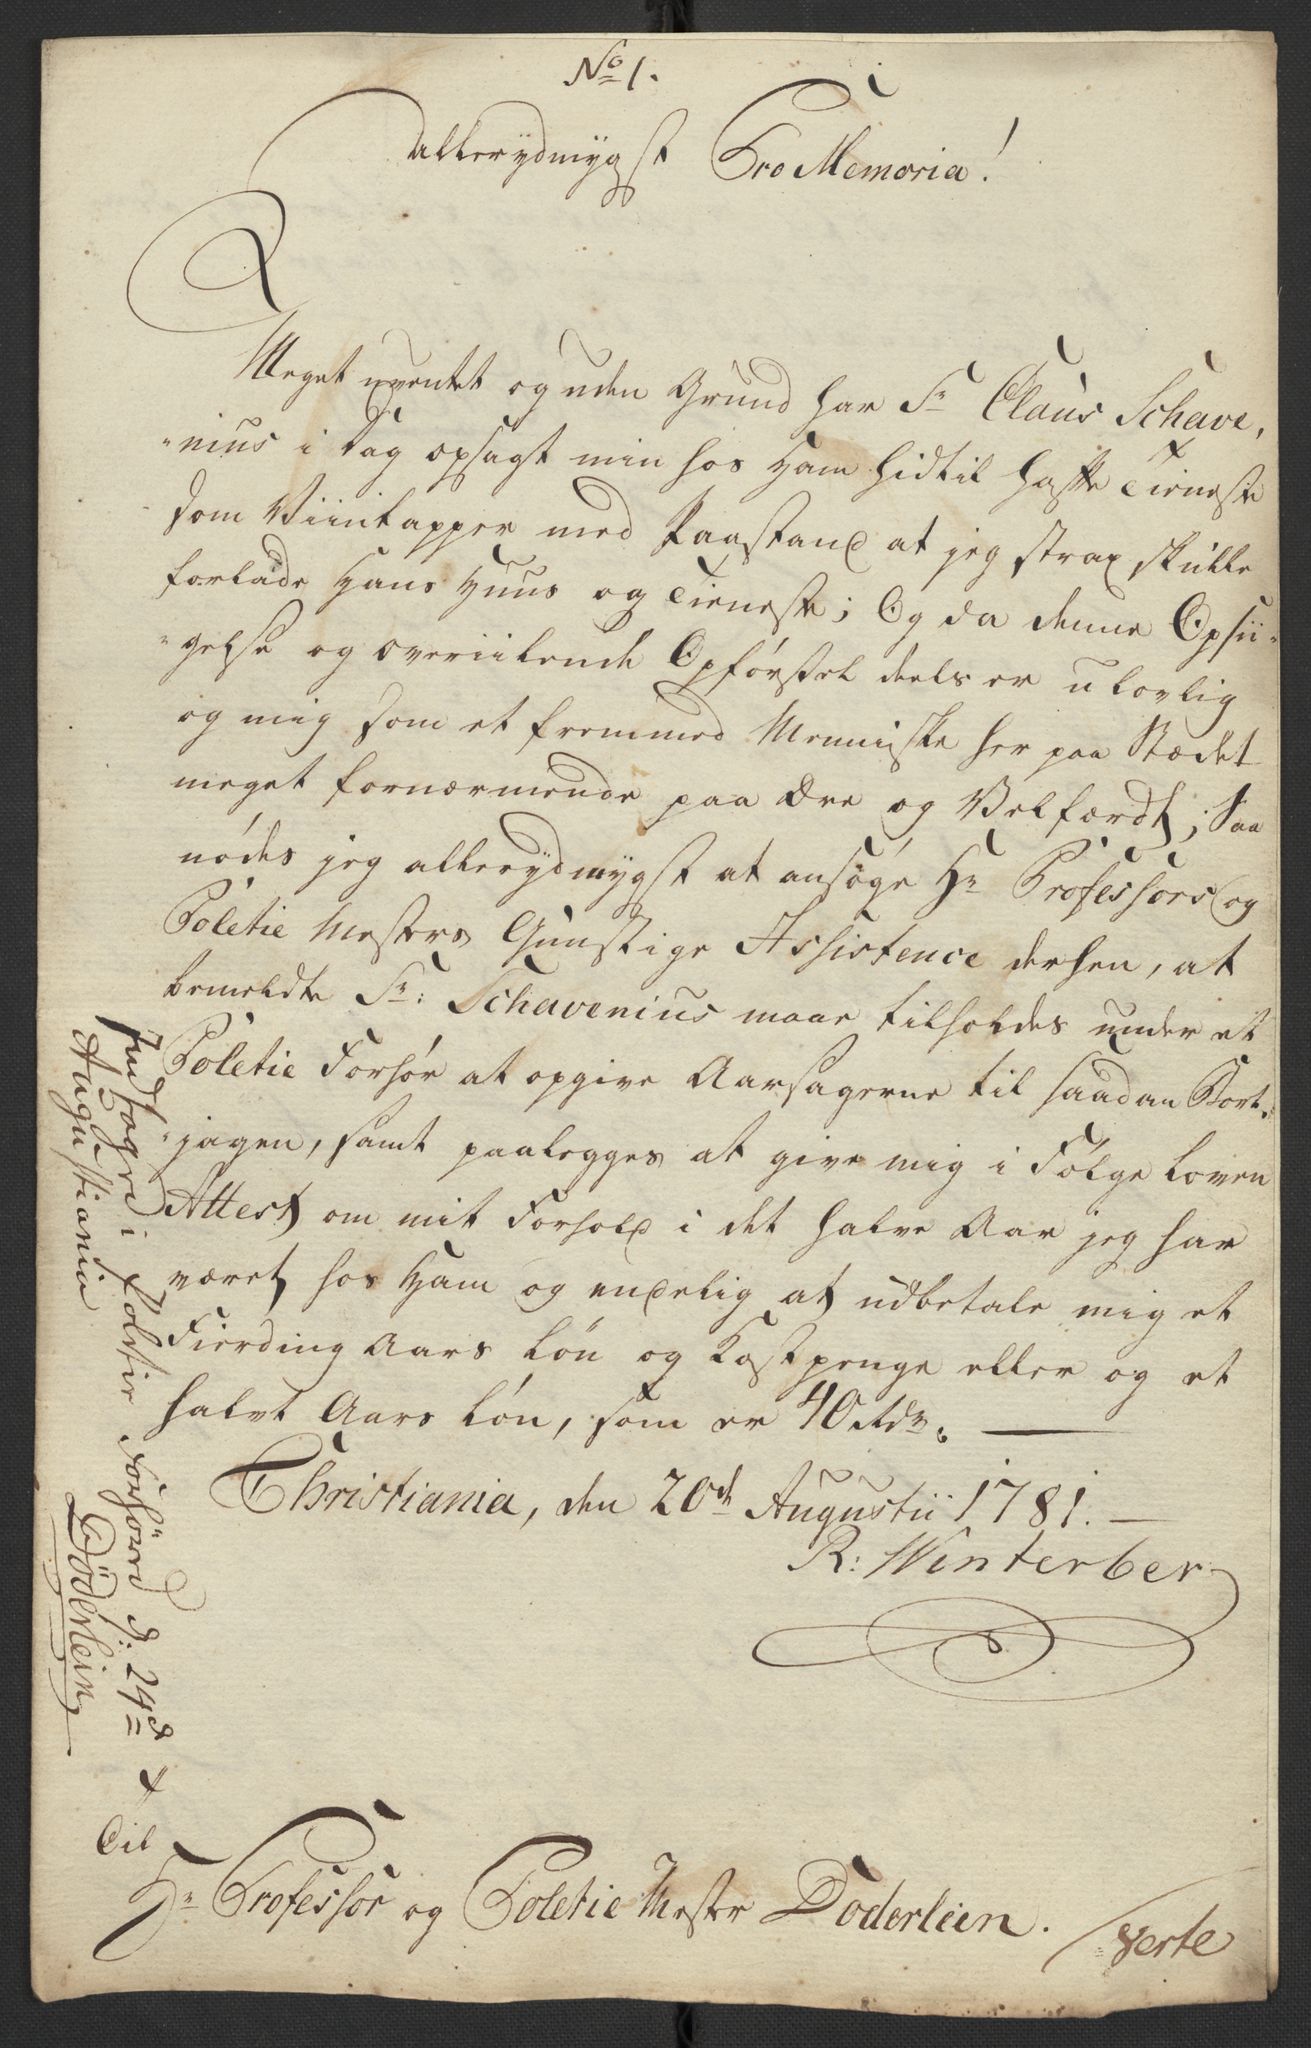 No 1.
Allerydmygst Pro Memoria!
Meget uventet og uden Grund har Sr Claus Schave,
"nius i Dag opsagt min hos Ham hidtil hafte Tieneste
som Viintapper med Paastand at jeg strax skulle
forlade Hans Huus og Tieneste; Og da denne Opsii-
"gelse og overiilende Opförsel deels er ulovlig
og mig som et fremmed Menniske her paa Stædet
meget fornærmende paa Ære og Velfærdt; Saa
nödes jeg allerydmygst at ansöge Hr Professors og
Politie Mesters Gunstige Assistence derhen, at
bemeldte Sr: Schavenius maae tilholdes under et
Politie Forhör at opgive Aarsagerne til saadan Bort-
"jagen, samt paalegges at give mig i Fölge Loven
Attest om mit Forhold i det halve Aar jeg har
været hos Ham og endelig at udbetale mig et
Fierding Aars Lön og Kostpenge eller og et
halvt Aars Lön, som er 40 Rdr.
Christiania, den 20de Augustii 1781.
R: Winterber
Til
Hr Professor og Politie Mester Döderlein.
Verte
Indlagt i Politie Forhöret d: 24de
Augusti
Döderlein